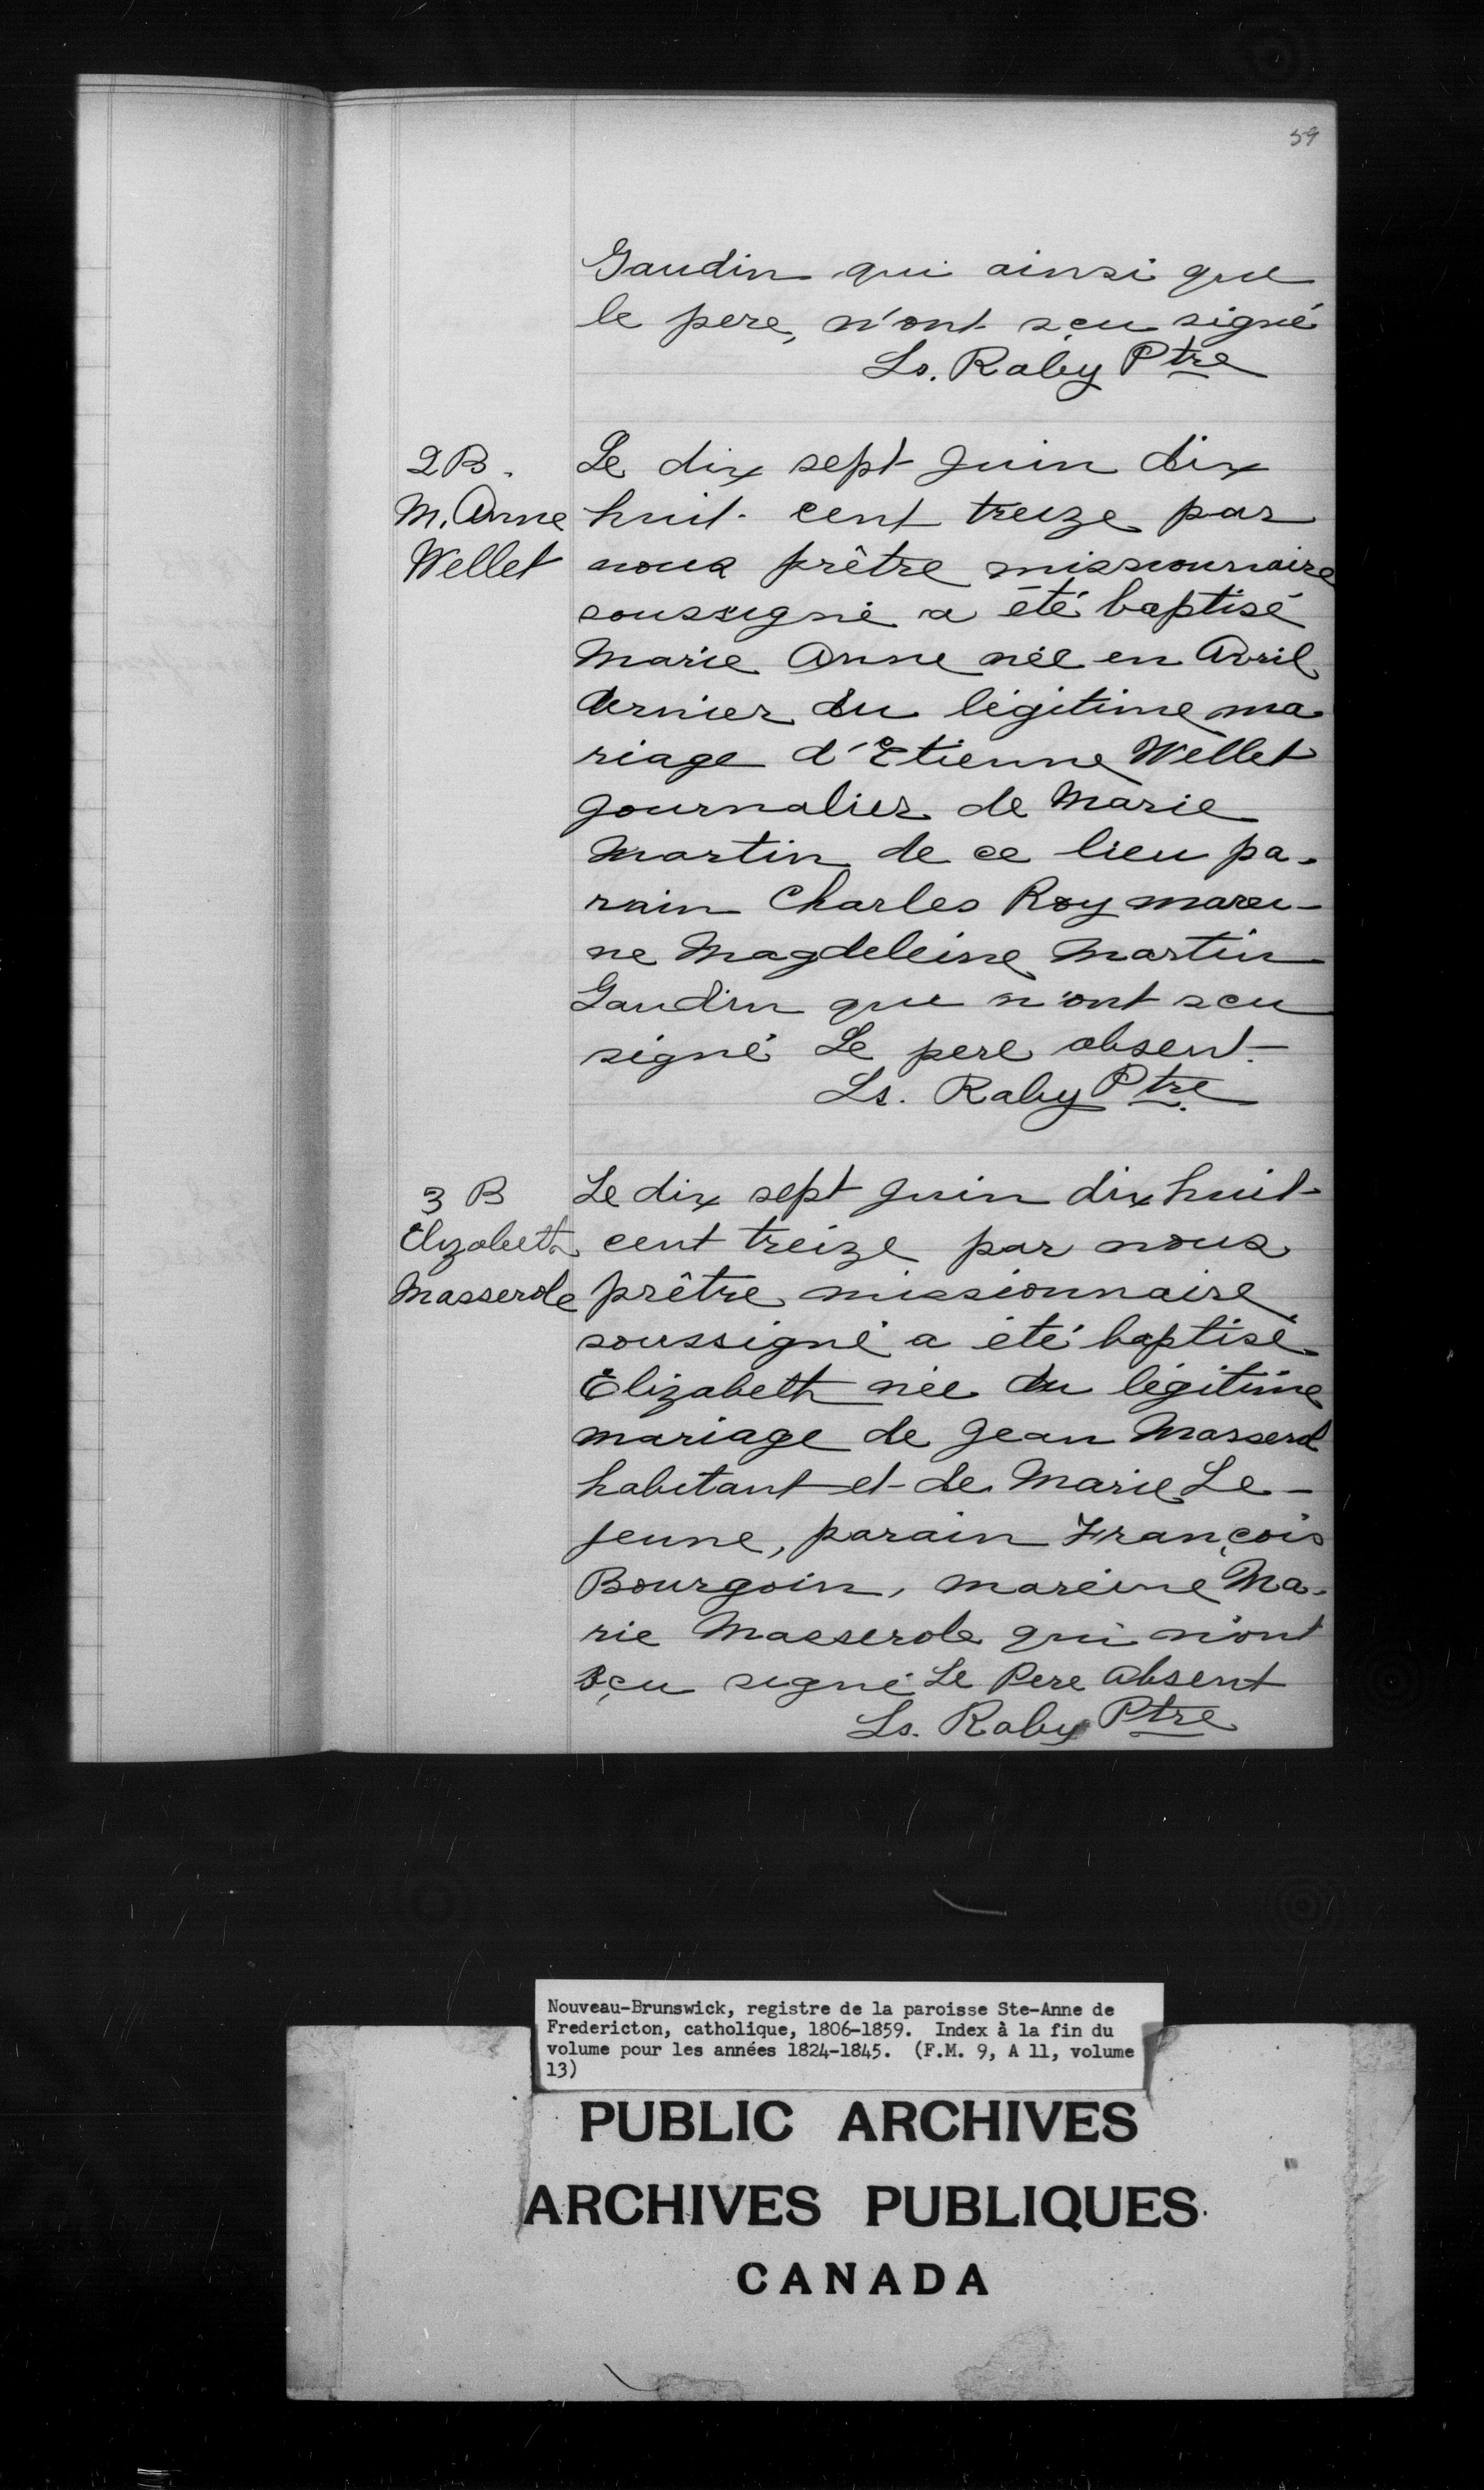 59
Gaudin qui ainsi que
le pere, n'ont sçu signé
Ls. Raby Ptre
2 B.
M. Anne
Wellet
Le dix sept Juin dix
huit cent treize par
nous prêtre missionnaire
soussigné a été baptisé
Marie Anne née en Avril
dernier du légitime ma
riage d'Etienne Wellet
journalier de Marie
Martin de ce lieu pa-
rain Charles Roy marei-
ne Magdeleine Martin
Gaudin qui n'ont scu
signé Le pere absent.
Ls. Raby Ptre
3 B
Elizabeth
Masserole
Le dix sept Juin dix huit
cent treize par nous
prêtre missionnaire
soussigné a été baptisé
Elizabeth née du légitime
mariage de Jean Masserol
habitant et de Marie Le-
jeune, parain François
Bourgoin, mareine Ma-
rie Masserole qui n'ont
sçu signé Le Pere absent
Ls. Raby Ptre
Nouveau-Brunswick, registre de la paroisse Ste-Anne de
Fredericton, catholique, 1806-1859. Index à la fin du
volume pour les années 1824-1845. (F.M. 9, A 11, volume
13)
PUBLIC ARCHIVES
ARCHIVES PUBLIQUES
CANADA